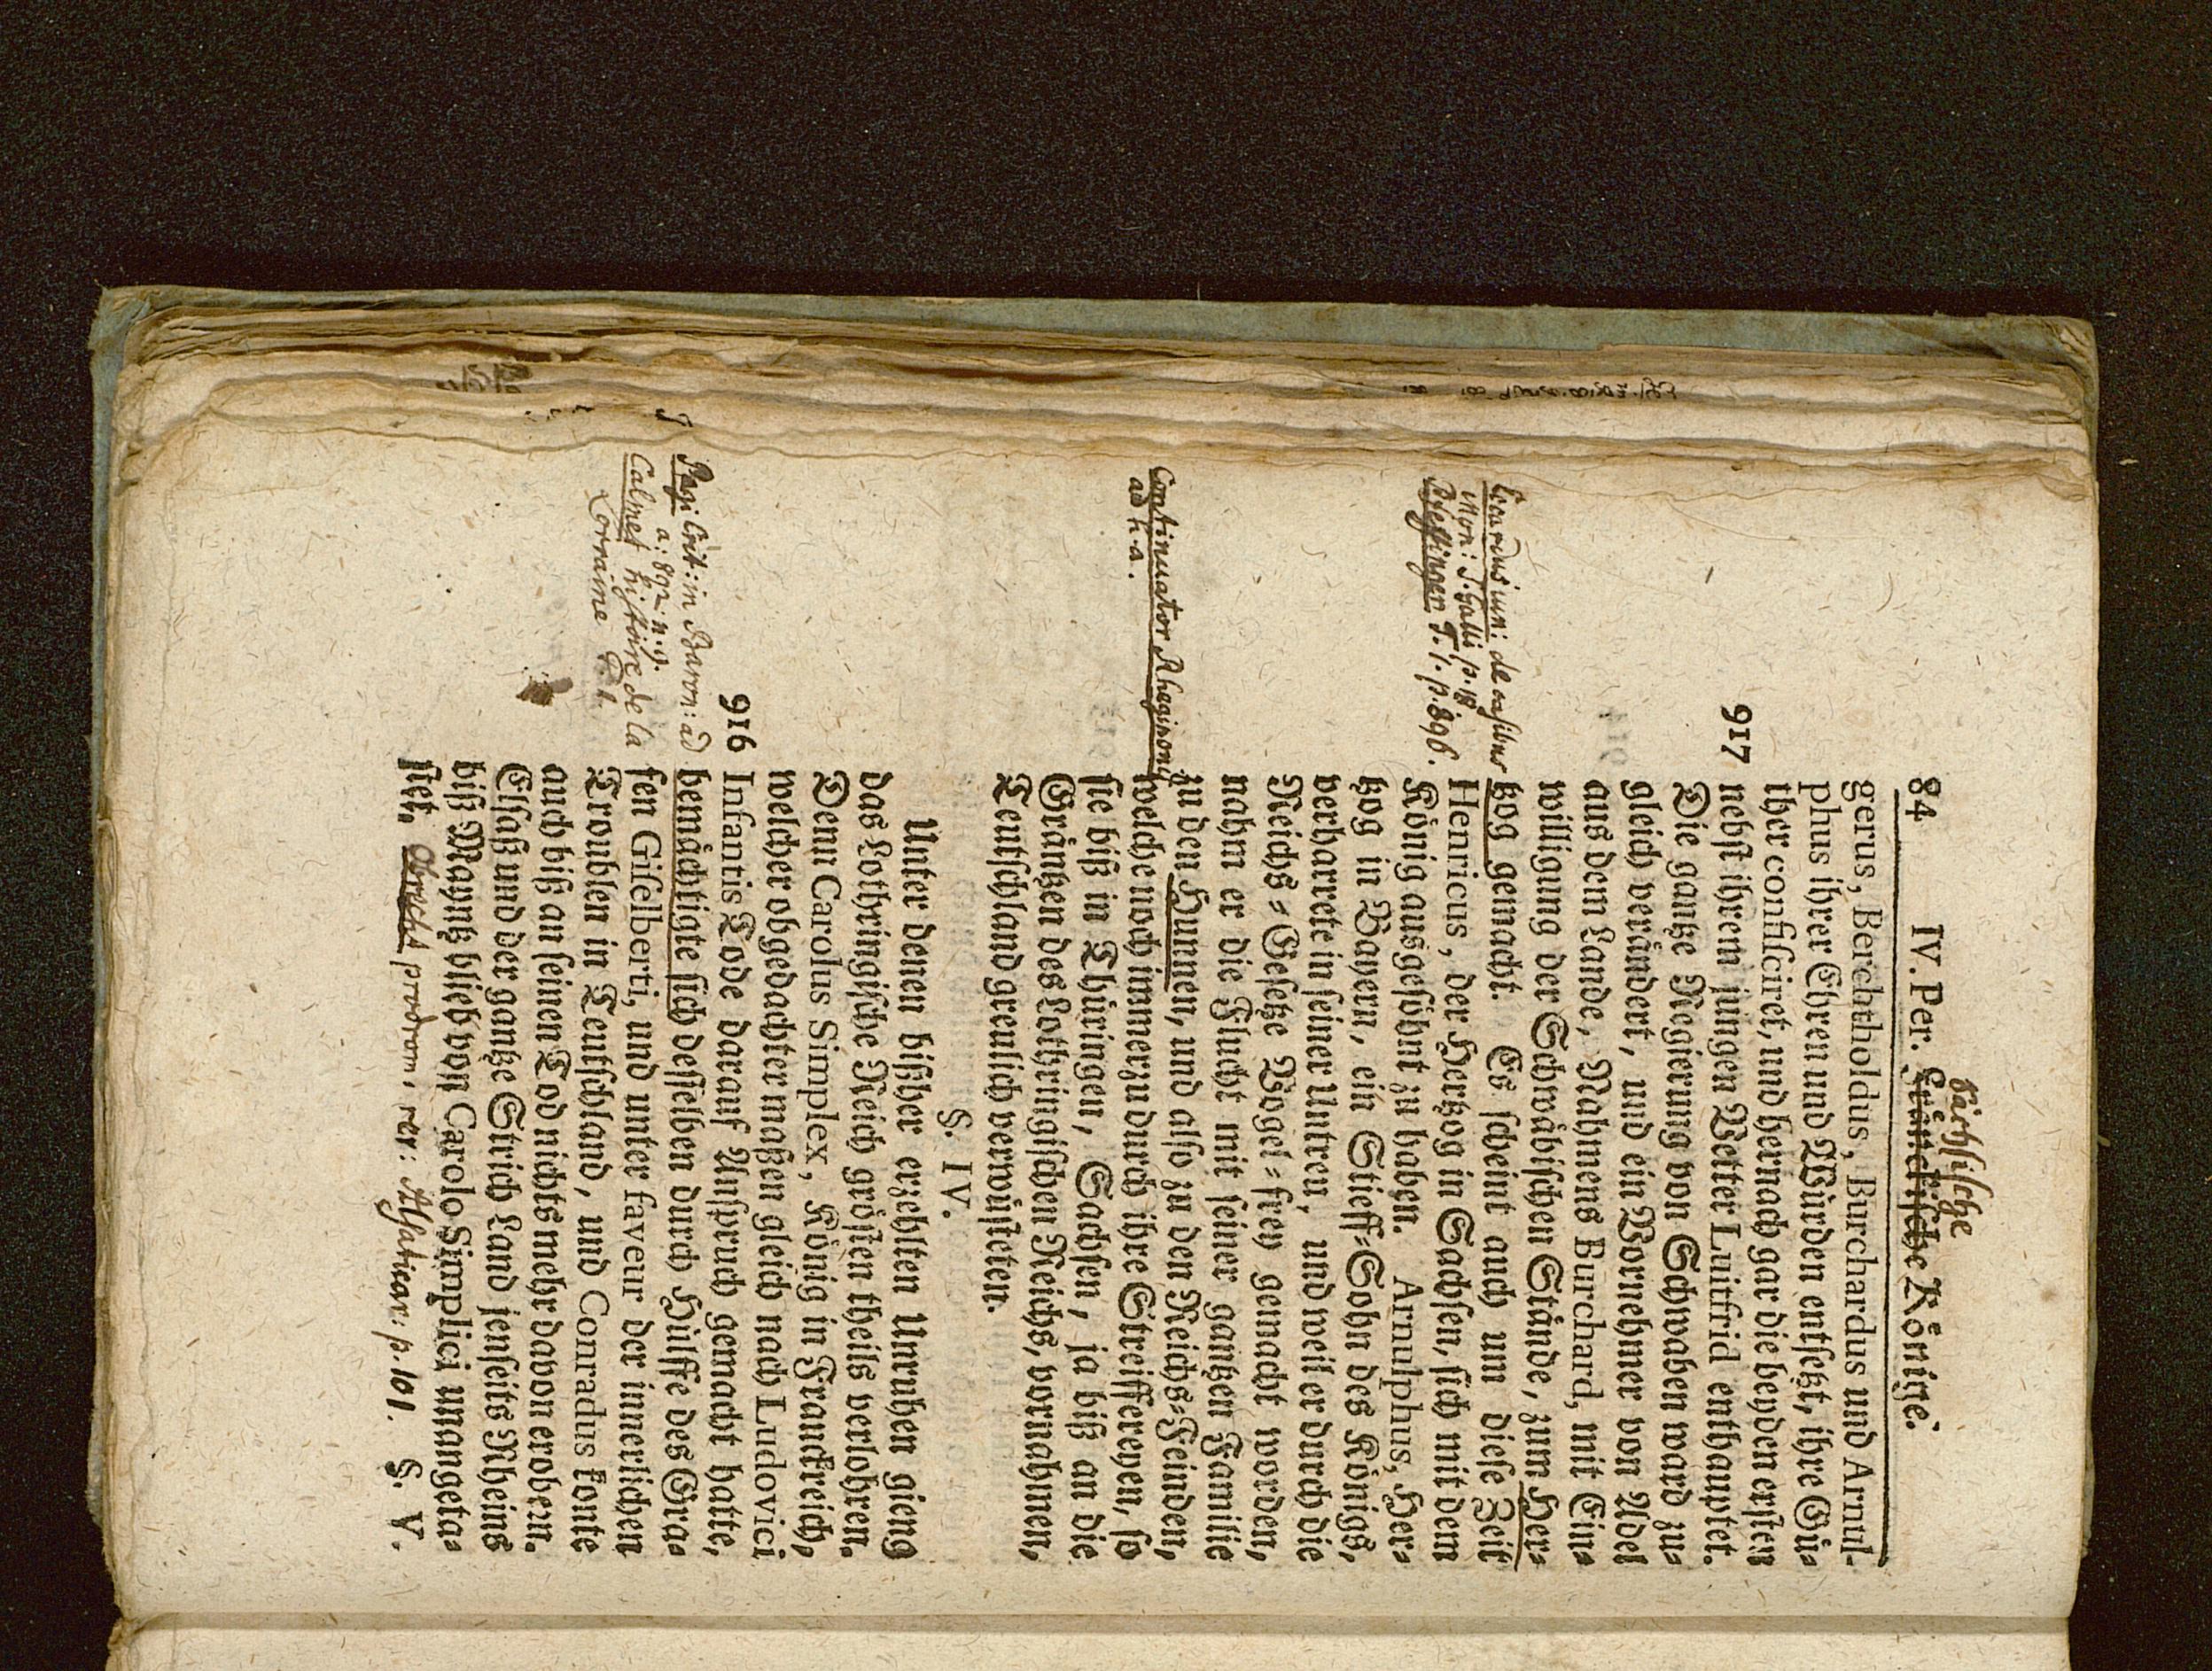 84 IV. Per. Fränckische Könige.
Sächsische
gerus, Berchtholdus, Burchardus und Arnul-
phus ihrer Ehren und Würden entsetzt, ihre Gü-
ther confisciret, und hernach gar die beyden ersten
917 nebst ihrem jungen Vetter Luitfrid enthauptet.
Die gantze Regierung von Schwaben ward zu-
gleich verändert, und ein Vornehmer von Adel
aus dem Lande, Nahmens Burchard, mit Ein-
willigung der Schwäbischen Stände, zum Her-
tzog gemacht. Es scheint auch um diese Zeit
Henricus, der Hertzog in Sachsen, sich mit dem
König ausgesöhnt zu haben. Arnulphus, Her-
tzog in Bayern, ein Stieff-Sohn des Königs,
verharrete in seiner Untreu, und weil er durch die
Reichs-Gesetze Vogel-frey gemacht worden,
nahm er die Flucht mit seiner gantzen Familie
zu den Hunnen, und also zu den Reichs-Feinden,
welche noch immerzu durch ihre Streiffereyen, so
sie biß in Thüringen, Sachsen, ja biß an die
Gräntzen des Lothringischen Reichs, vornahmen,
Teutschland greulich verwüsteten.
§. IV.
Unter denen bißher erzehlten Unruhen gieng
das Lothringische Reich grösten theils verlohren.
Denn Carolus Simplex, König in Franckreich,
welcher obgedachter maßen gleich nach Ludovici
916 Infantis Tode darauf Anspruch gemacht hatte,
bemächtigte sich desselben durch Hülffe des Gra-
fen Giselberti, und unter faveur der innerlichen
Troublen in Teutschland, und Conradus konte
auch biß an seinen Tod nichts mehr davon erobern.
Elsaß und der gantze Strich Land jenseits Rheins
biß Mayntz blieb von Carolo Simplici unangeta-
stet. Obrecht prodrom: rer: Alsaticar: p. 101.
§. V.
Eccardus iun: de casibus
mon: S. Galli p. 18
Pfeffinger T. 1. p. 896.
Continuator Rheginonis
ad h. a.
Pagi Crit: in Baron: ad
a: 892. n. 9.
Calmet histoire de la
Lorraine T. 1.